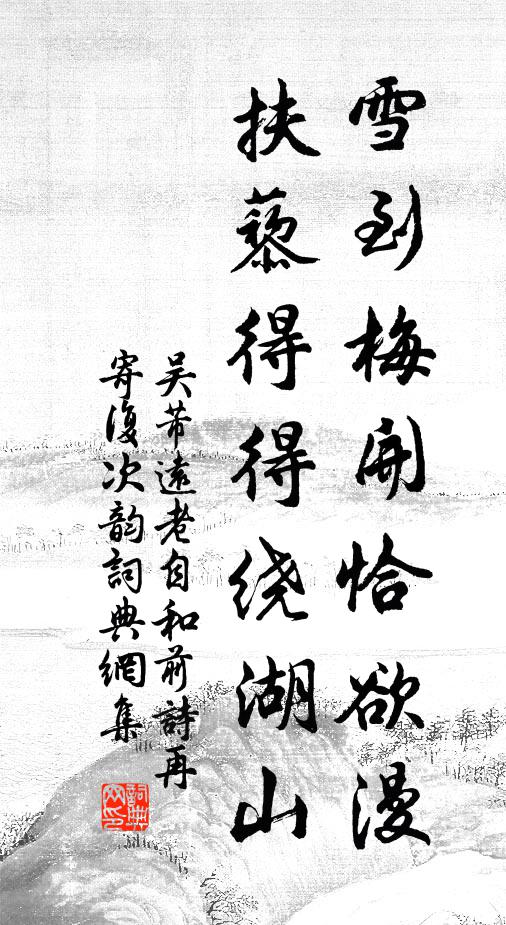 雪到梅開恰欲漫
扶藜得得绕湖山
吴芾遠老自和前詩再
寄復次韵詞典網集
詞典網印